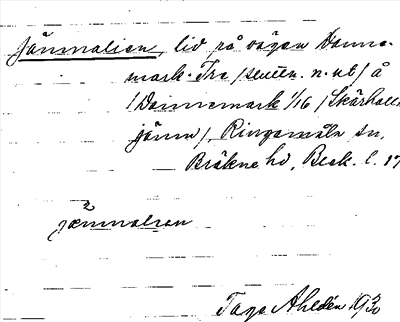 Jämnalien, lid på vägen Danne-
mark-Tre / 
/ Dannemark 1/16 / Skärhall
jämn /, Ringamåla sn,
Bräkne hd, Blek. l. 19
jämnalien
Tage Ahldén 1930